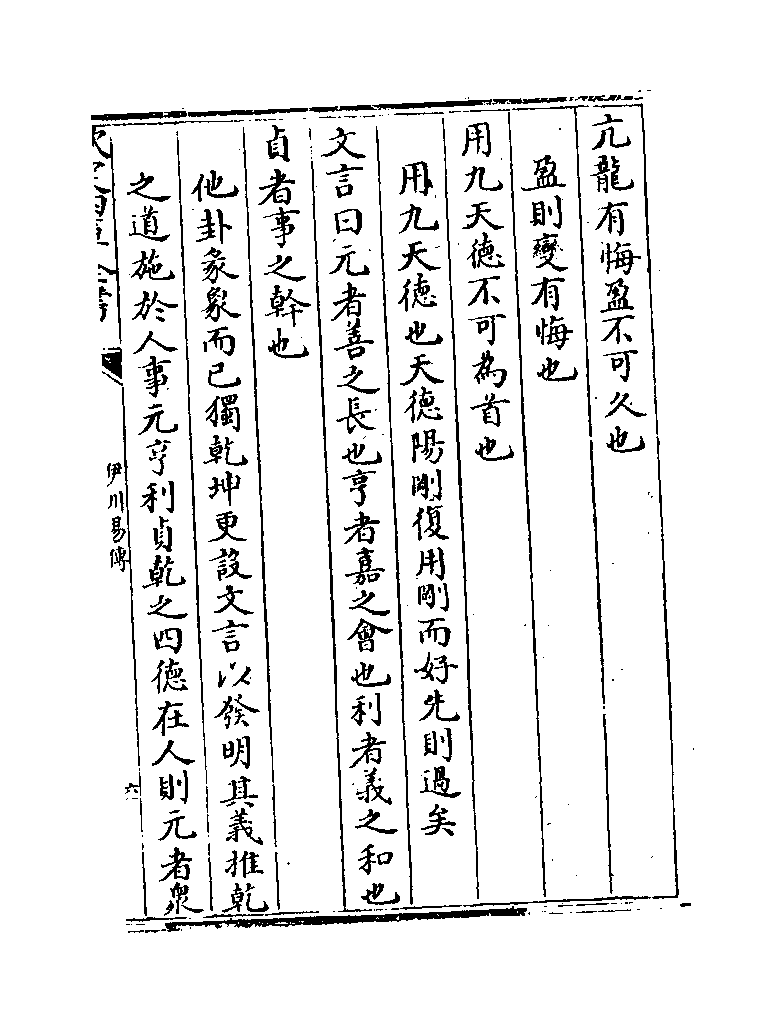 亢龍有悔盈不可久也
盈則變有悔也
用九天德不可為首也
用九天德也天德陽剛復用剛而好先則過矣
文言曰元者善之長也亨者嘉之會也利者義之和也
貞者事之幹也
他卦彖象而已獨乾坤更設文言以發明其義推乾
之道施於人事元亨利貞乾之四德在人則元者衆
伊川易傳
六